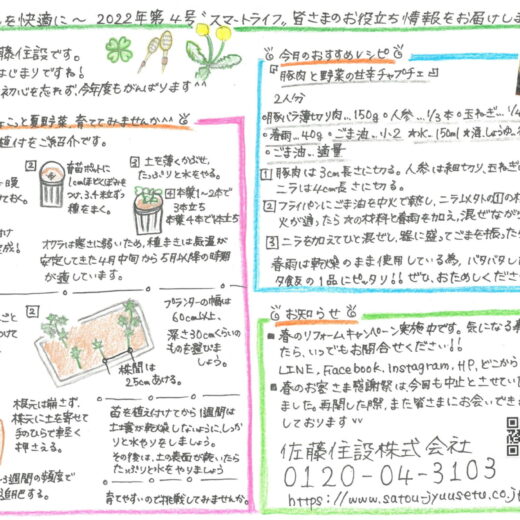 を快適に～ 2022年第4号 "スマートライフ" 皆さまのお役立ち情報をお届けしま
藤住設です。
はじまりですね!
初心を忘れず、今年度もがんばります^^
こと夏野菜、育ててみませんか^^
植付をご紹介です。
2
育苗ポットに
1cmほどくぼみを
つけ、3、4粒ずつ
種をまく。
3
土を薄くかぶせ、
たっぷりと水をやる。
4
本葉1～2本で
3本立ち
本葉4本で1本立ち
オクラは寒さに弱いため、種まきは気温が
安定してきた4月中旬から5月以降の時期
が適しています。
2
プランターの幅は
60cm以上、
深さ30cmくらいの
ものを選びま
しょう。
株間は
25cmあける。
根元は崩さず、
株元に土を寄せて
手のひらで軽く
押さえる。
苗を植え付けてから1週間は
土壌が乾燥しないように、しっか
りと水やりをしましょう。
その後は、土の表面が乾いたら
たっぷりと水をやりましょう
3週間の頻度で
追肥する。
育てやすいので挑戦してみませんか。
今月のおすすめレシピ
豚肉と野菜の甘辛チャプチェ
2人分
・豚バラ薄切り肉...150g ・人参...1/3本 ・玉ねぎ...1/4
・春雨...40g ・ごま油...小2 ・水...150ml
・ごま油...適量
1 豚肉は3cm長さに切る。人参は細切り、玉ねぎ
ニラは4cm長さに切る。
2 フライパンにごま油を中火で熱し、ニラ以外の1の
火が通ったら★の材料と春雨を加え、混ぜなが
3 ニラを加えてひと混ぜし、器に盛ってごまを振った
春雨は乾燥のまま使用している為、パタパタし
夕食の1品にピッタリ!! ぜひ、おためしくださ
お知らせ
■春のリフォームキャンペーン実施中です。気になる
たら、いつでもお問合せください!!
LINE、Facebook、Instagram、HP、どこから
■春のお客さま感謝祭は今回も中止とさせていた
ました。再開した際、また皆さまにお会いできる
しております
佐藤住設株式会社
0120-04-3103
https://www.satou-jyuusetu.co.j